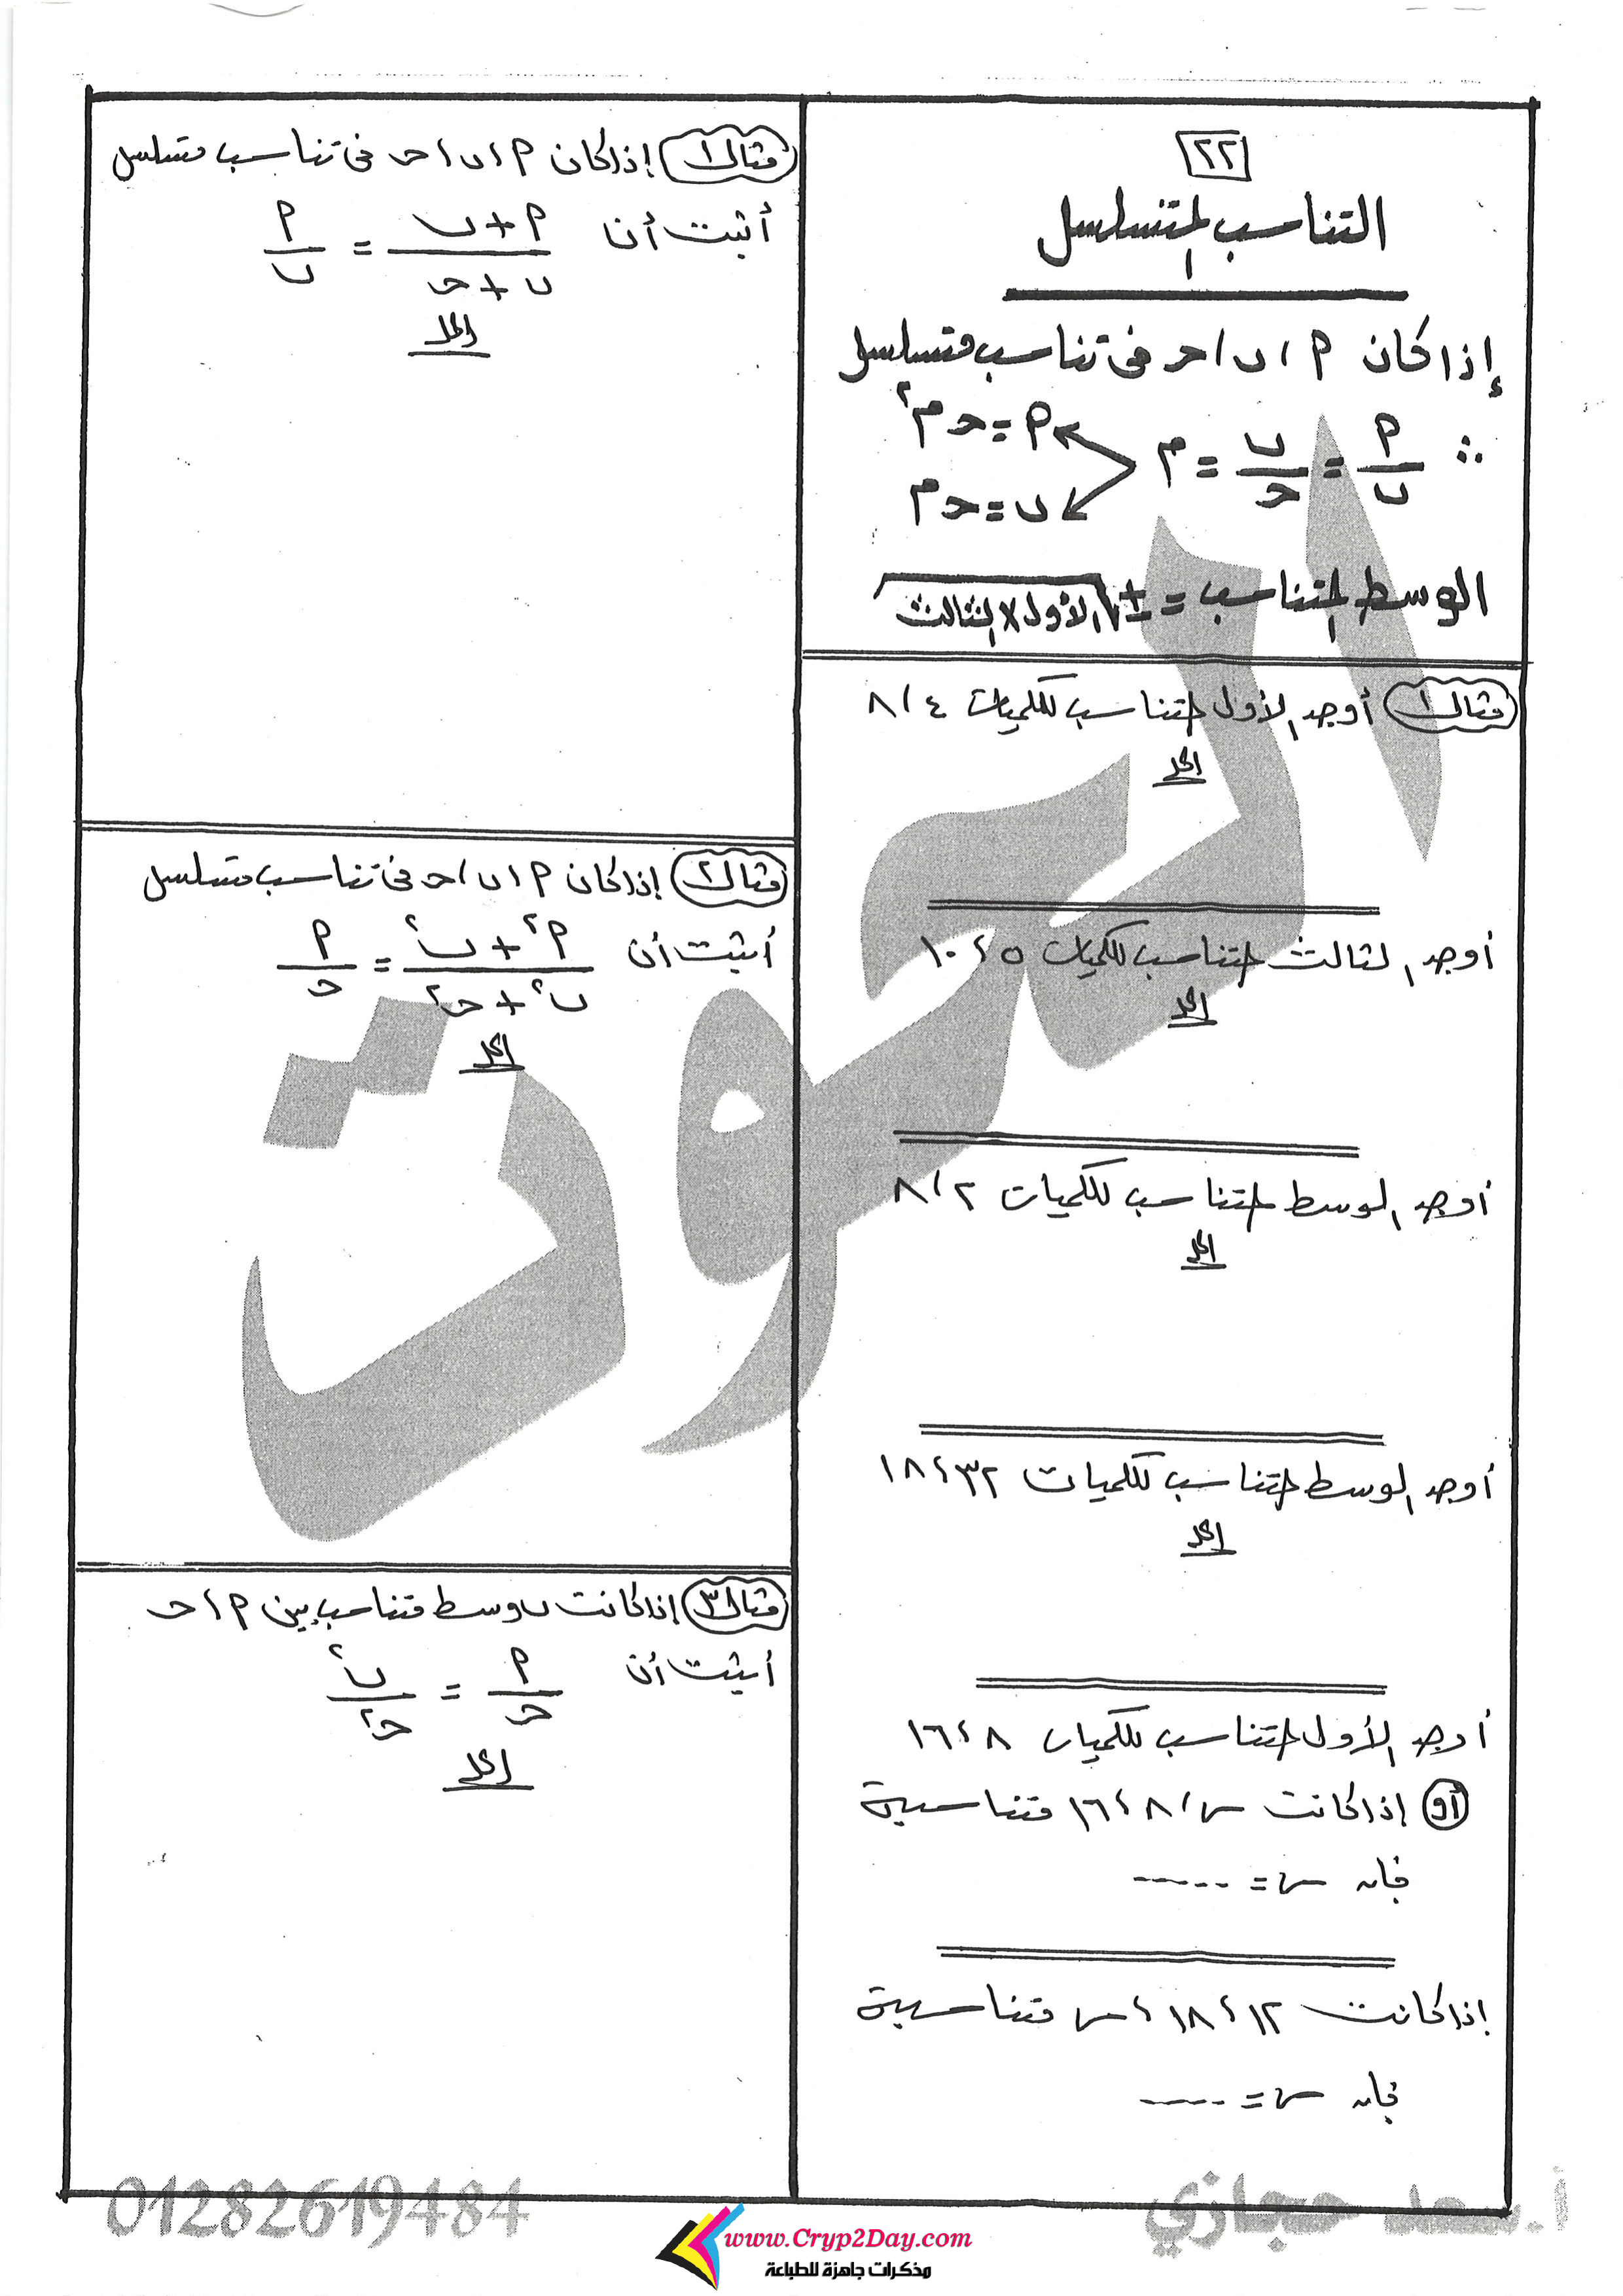 ٢٢
التناسب المتسلسل
إذا كان م ، ب ، حـ فى تناسب متسلسل
∴ م/ب = ب/حـ = م
م = حـ م٢
ب = حـ م
الوسط المتناسب = ± √الأول × الثالث
مثال ١ أوجد الأول المتناسب للكميات ٤ ، ٨
الحل
أوجد الثالث المتناسب للكميات ٥ ، ١٠
الحل
أوجد الوسط المتناسب للكميات ٢ ، ٨
الحل
أوجد الوسط المتناسب للكميات ٣٢ ، ١٨
الحل
أوجد الأول المتناسب للكميات ٨ ، ١٦
أو إذا كانت س ، ٨ ، ١٦ متناسبة
فإن س = -----
إذا كانت ١٢ ، ١٨ ، س متناسبة
فإن س = -----
مثال ١ إذا كان م ، ب ، حـ فى تناسب متسلسل
أثبت أن (م + ب)/(ب + حـ) = م/ب
الحل
مثال ٢ إذا كان م ، ب ، حـ فى تناسب متسلسل
أثبت أن (م٢ + ب٢)/(ب٢ + حـ٢) = م/حـ
الحل
مثال ٣ إذا كانت ب وسط متناسب بين م ، حـ
أثبت أن م/حـ = ب٢/حـ٢
الحل
أ.سعد حجازي
01282619484
www.Cryp2Day.com
مذكرات جاهزة للطباعة